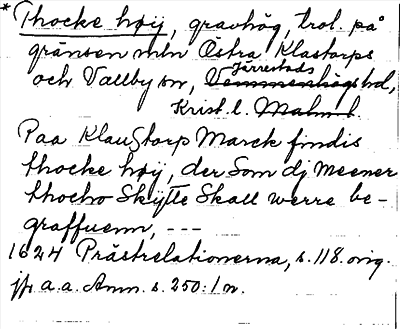 * Thocke høÿ, gravhög, trol. på
gränsen mln Östra Klastorps
och Vallby sn, Vemmenhögs hd, Järrestads
Krist. l. Malm. l.
Paa Klaustorp Marck findis
thocke høÿ, der Som dj Meener
thocho Skÿtte Skall werre be-
graffuenn, ---
1624 Prästrelationerna, s. 118. orig.
jfr a.a. Anm. s. 250:1 n.